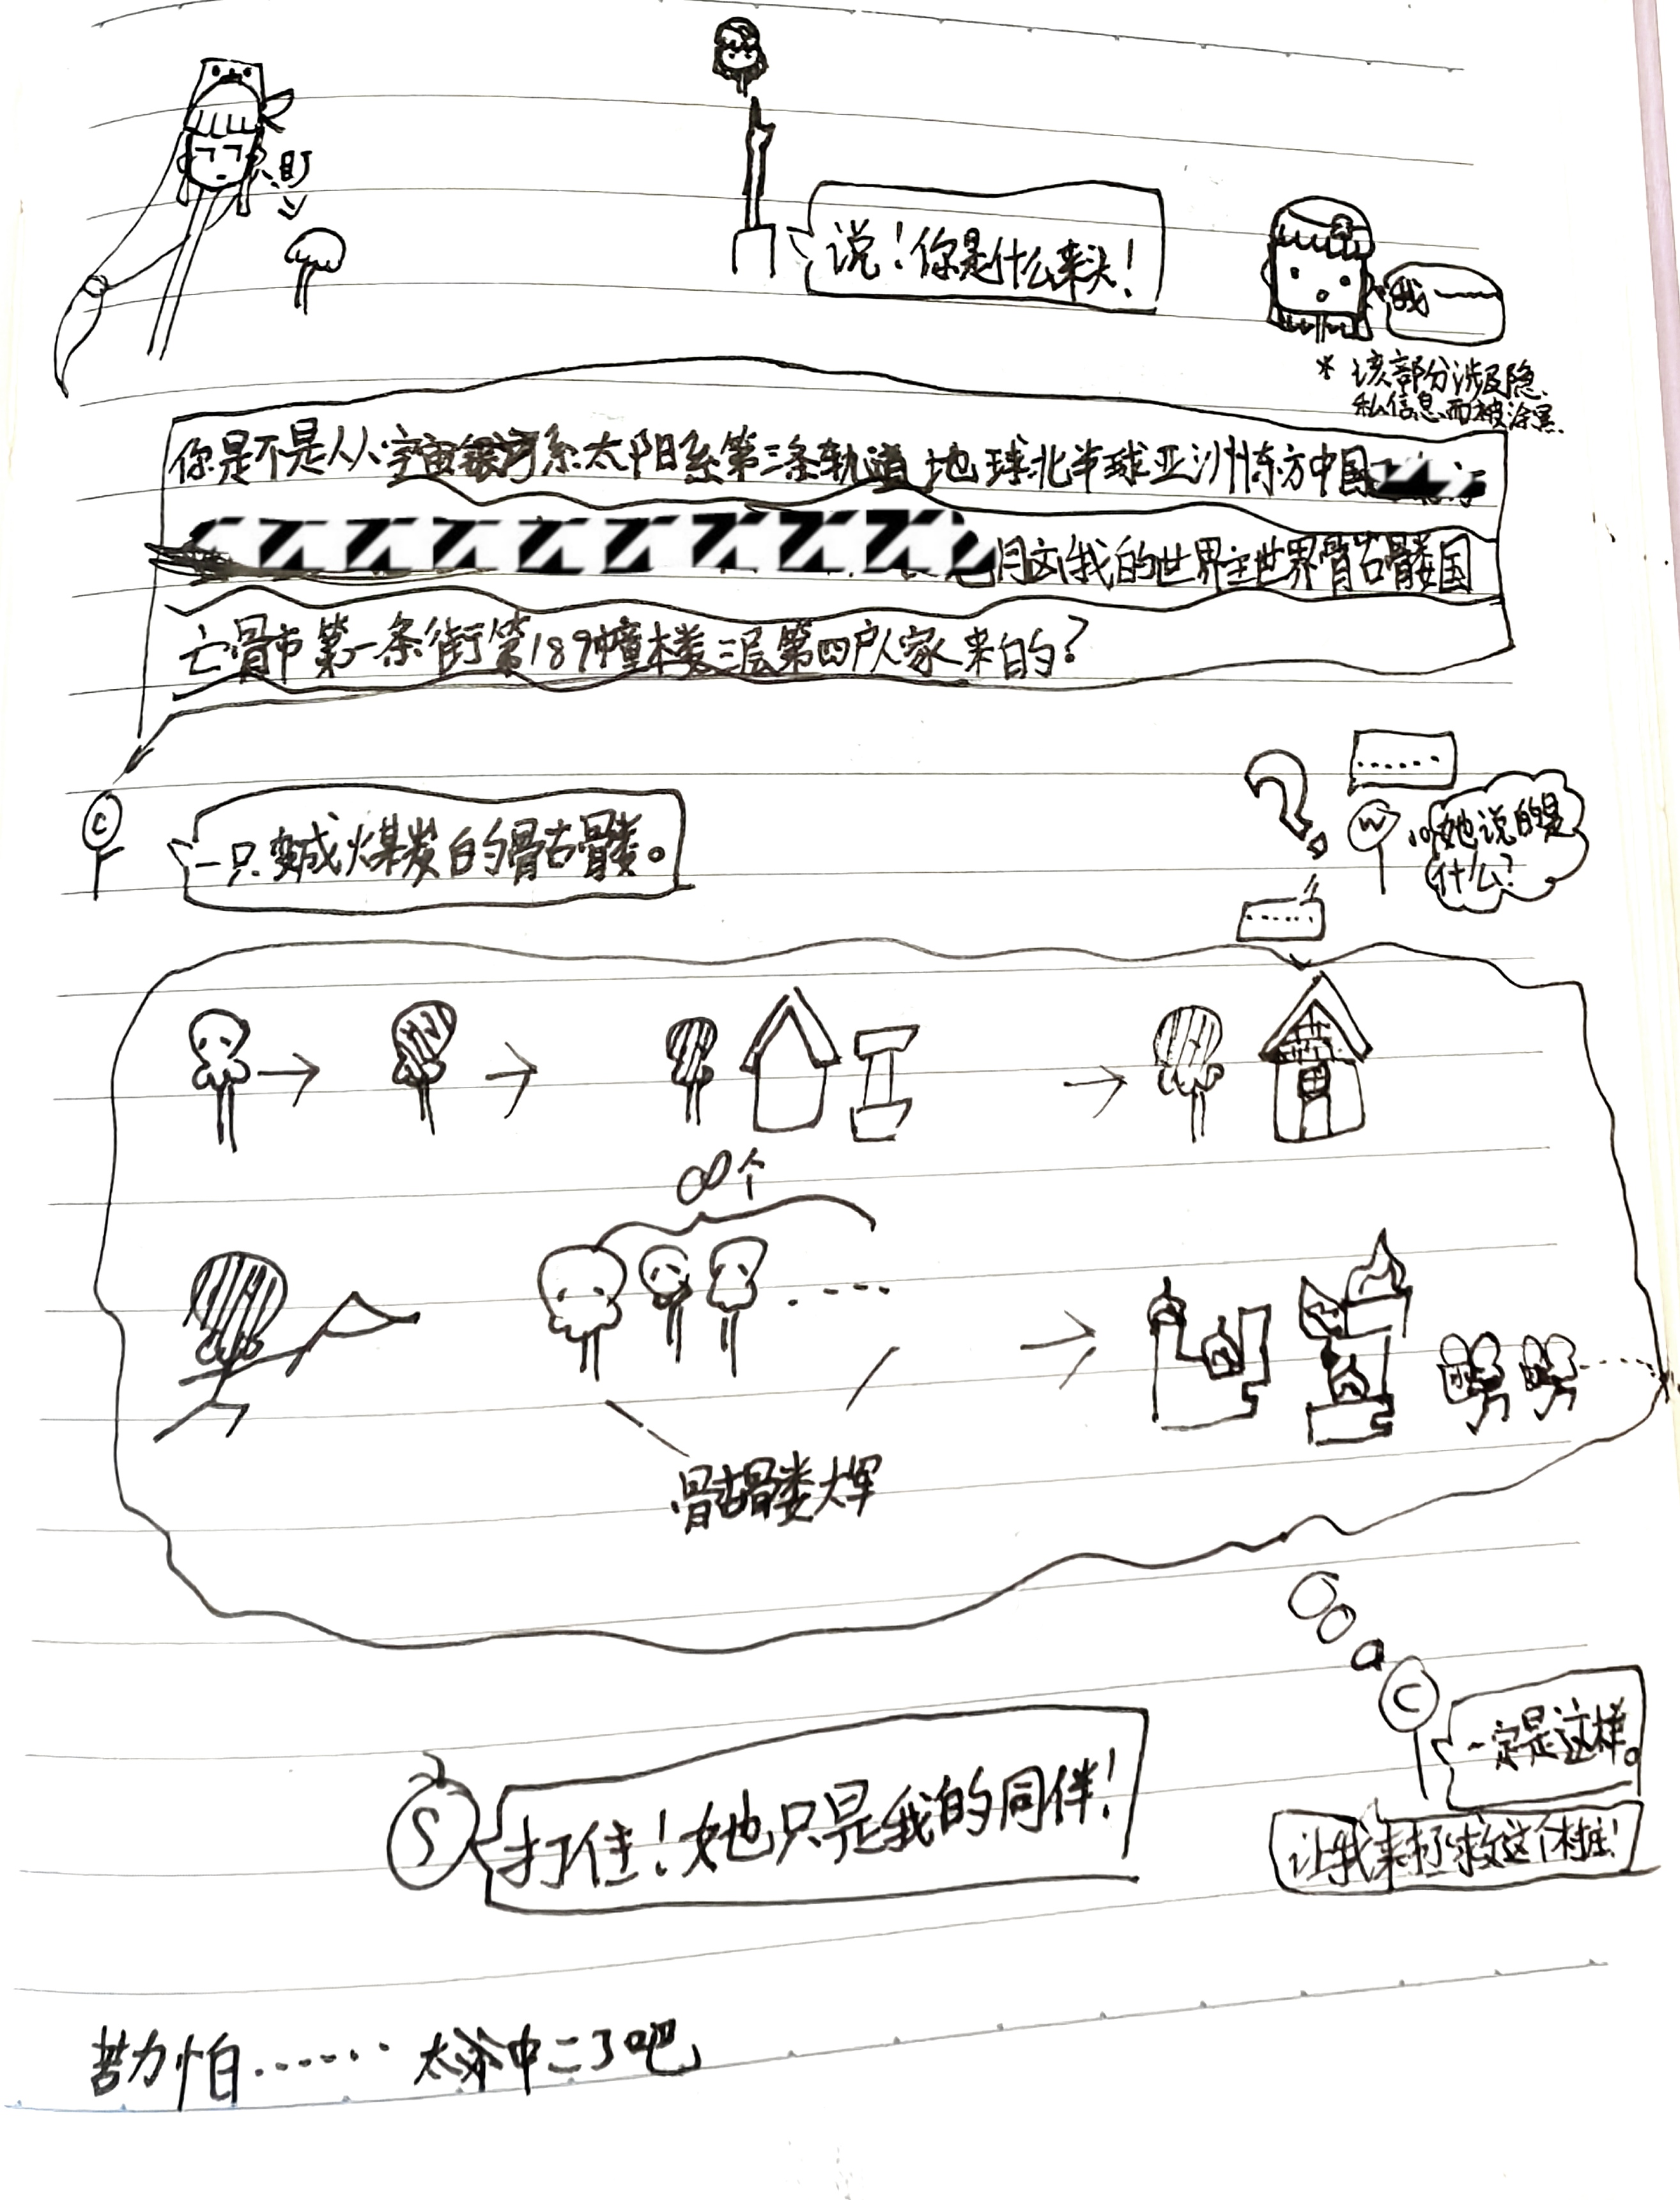 盯
说！你是什么来头！
我——
*该部分涉及隐
私信息而被涂黑
你是不是从宇宙银河系太阳系第三条轨道地球北半球亚洲东方中国
我的世界主世界骨古骨娄国
亡骨市第一条街第189幢楼三层第四户人家来的？
C
一只变成煤炭的骷髅。
……
W
她说的是
什么？
……
∞个
骷髅大军
C
一定是这样。
S
打住！她只是我的同伴！
让我来拯救这个村庄！
苦力怕……太中二了吧